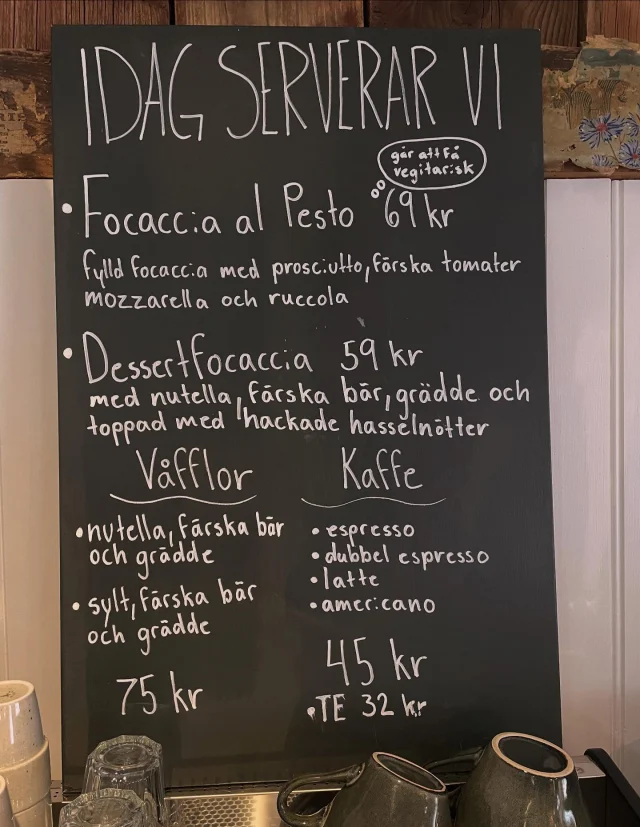 IDAG SERVERAR VI
går att få
vegitarisk
• Focaccia al Pesto 69 kr
fylld focaccia med prosciutto, färska tomater
mozzarella och ruccola
• Dessertfocaccia 59 kr
med nutella, färska bär, grädde och
toppad med hackade hasselnötter
Våfflor
• nutella, färska bär
och grädde
• sylt, färska bär
och grädde
75 kr
Kaffe
• espresso
• dubbel espresso
• latte
• americano
45 kr
• TE 32 kr